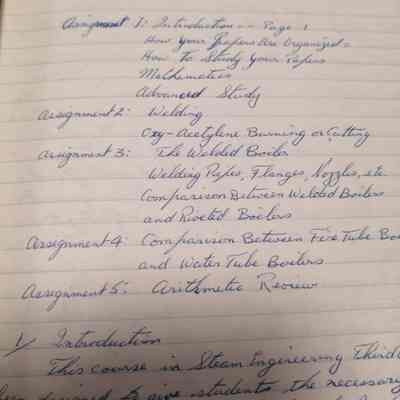 Assignment 1: Introduction -- Page 1
How Your Papers Are Organized =
How To Study Your Papers
Mathematics
Advanced Study
Assignment 2: Welding
Oxy-Acetylene Burning or Cutting
Assignment 3: The Welded Boiler
Welding Pipes, Flanges, Nozzles, etc
Comparison Between Welded Boilers
and Riveted Boilers
Assignment 4: Comparison Between Fire Tube Boi
and Water Tube Boilers
Assignment 5: Arithmetic Review
1/ Introduction
This course in Steam Engineering Third
been designed to give students the necessary